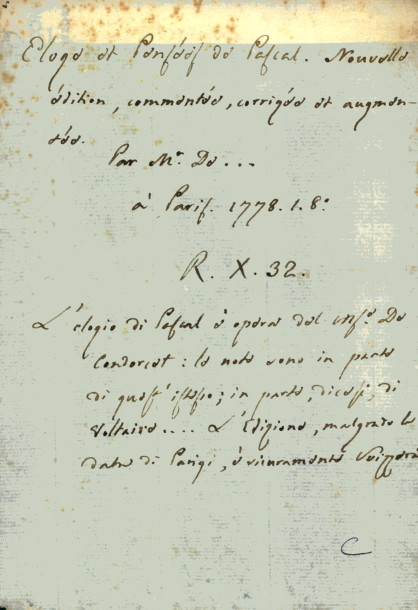 Eloge et Pensées de Pascal. Nouvelle
édition, commentée, corrigée et augmen
tée.
Par Mr. De ...
à Paris. 1778. 1. 8°
R. X. 32.
L'elogio di Pascal è opera del March.e De
Condorcet: le note sono in parte
di quest' istesso; in parte, dicesi, di
Voltaire .... L'Edizione, malgrado la
data di Parigi, è sicuramente Svizzera
C